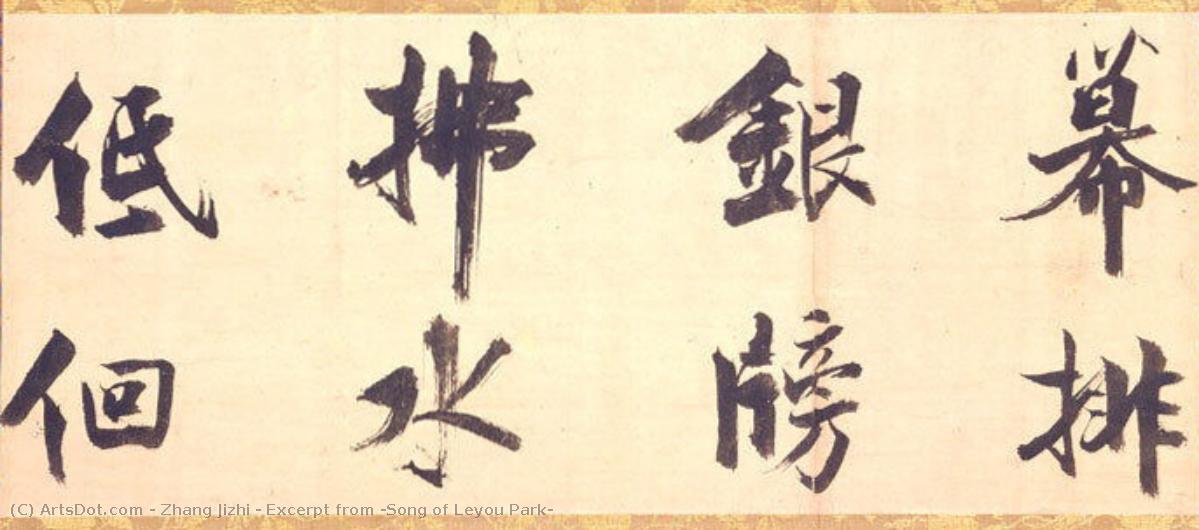 幕排
銀牓
拂水
低佪
(C) ArtsDot.com - Zhang Jizhi - Excerpt from -Song of Leyou Park-